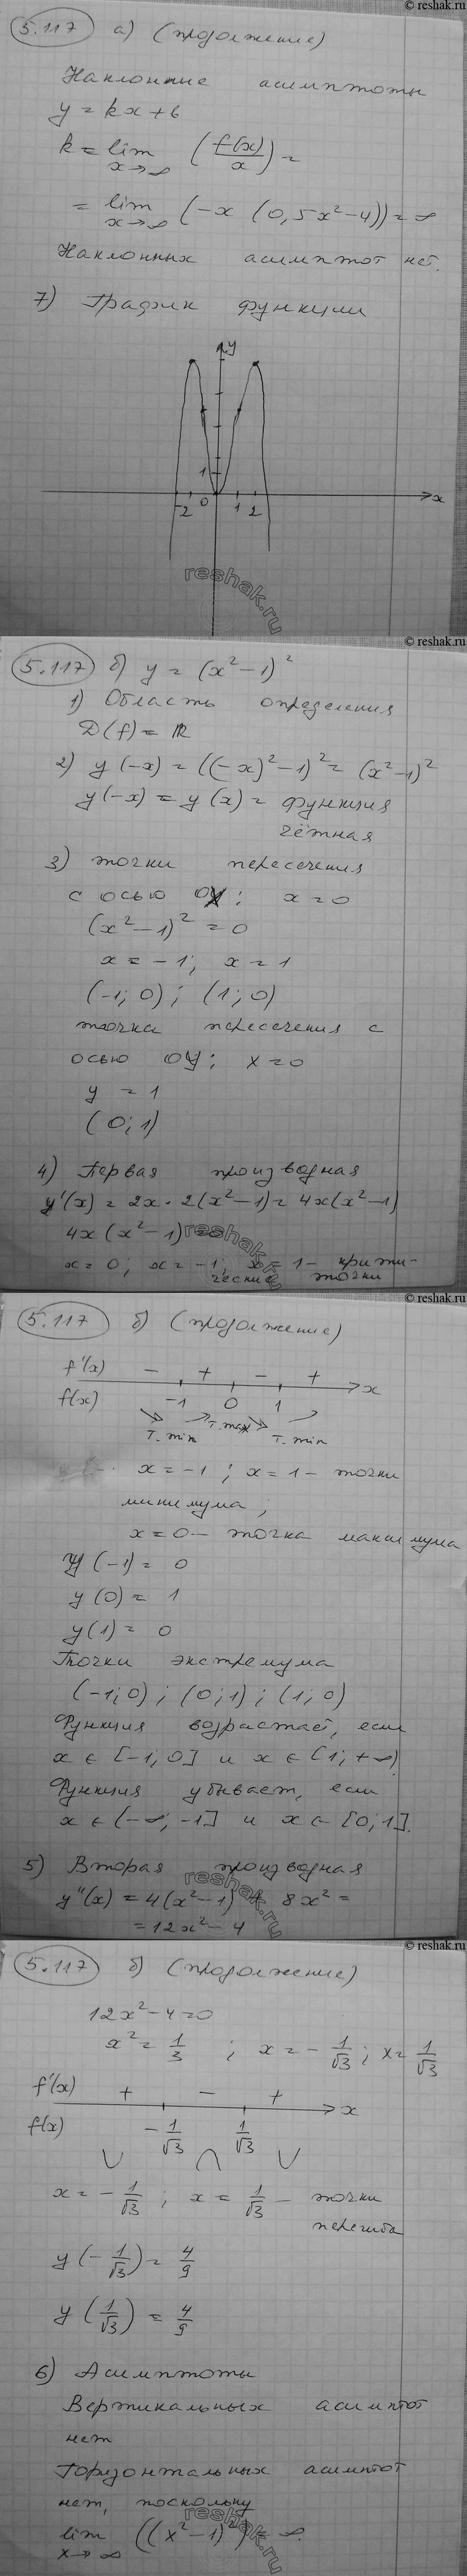 © reshak.ru
5.117 а) (продолжение)
Наклонные асимптоты
y = kx + b
k = lim x→∞ (f(x)/x) =
= lim x→∞ (-x (0,5x² - 4)) = ∞
Наклонных асимптот нет.
7) График функции
y
1
-2 0 1 2 x
reshak.ru
© reshak.ru
5.117 б) y = (x² - 1)²
1) Область определения
D(f) = ℝ
2) y(-x) = ((-x)² - 1)² = (x² - 1)²
y(-x) = y(x) = функция
чётная
3) точки пересечения
с осью OX: x = 0
(x² - 1)² = 0
x = -1; x = 1
(-1; 0); (1; 0)
точка пересечения с
осью OY: x = 0
y = 1
(0; 1)
4) Первая производная
y'(x) = 2x · 2(x² - 1) = 4x(x² - 1)
4x(x² - 1) = 0
x = 0; x = -1; x = 1 - крити-
ческие точки
reshak.ru
© reshak.ru
5.117 б) (продолжение)
f'(x) - + - +
f(x) -1 0 1 x
т. min т. max т. min
x = -1; x = 1 - точки
минимума;
x = 0 - точка максимума
y(-1) = 0
y(0) = 1
y(1) = 0
Точки экстремума
(-1; 0); (0; 1); (1; 0)
Функция возрастает, если
x ∈ [-1; 0] и x ∈ [1; +∞)
Функция убывает, если
x ∈ (-∞; -1] и x ∈ [0; 1].
5) Вторая производная
y''(x) = 4(x² - 1) + 8x² =
= 12x² - 4
reshak.ru
© reshak.ru
5.117 б) (продолжение)
12x² - 4 = 0
x² = 1/3; x = -1/√3; x = 1/√3
f'(x) + - +
f(x) -1/√3 1/√3 x
x = -1/√3; x = 1/√3 - точки
перегиба
y(-1/√3) = 4/9
y(1/√3) = 4/9
6) Асимптоты
Вертикальных асимптот
нет
Горизонтальных асимптот
нет, поскольку
lim x→∞ ((x² - 1)²) = ∞.
reshak.ru